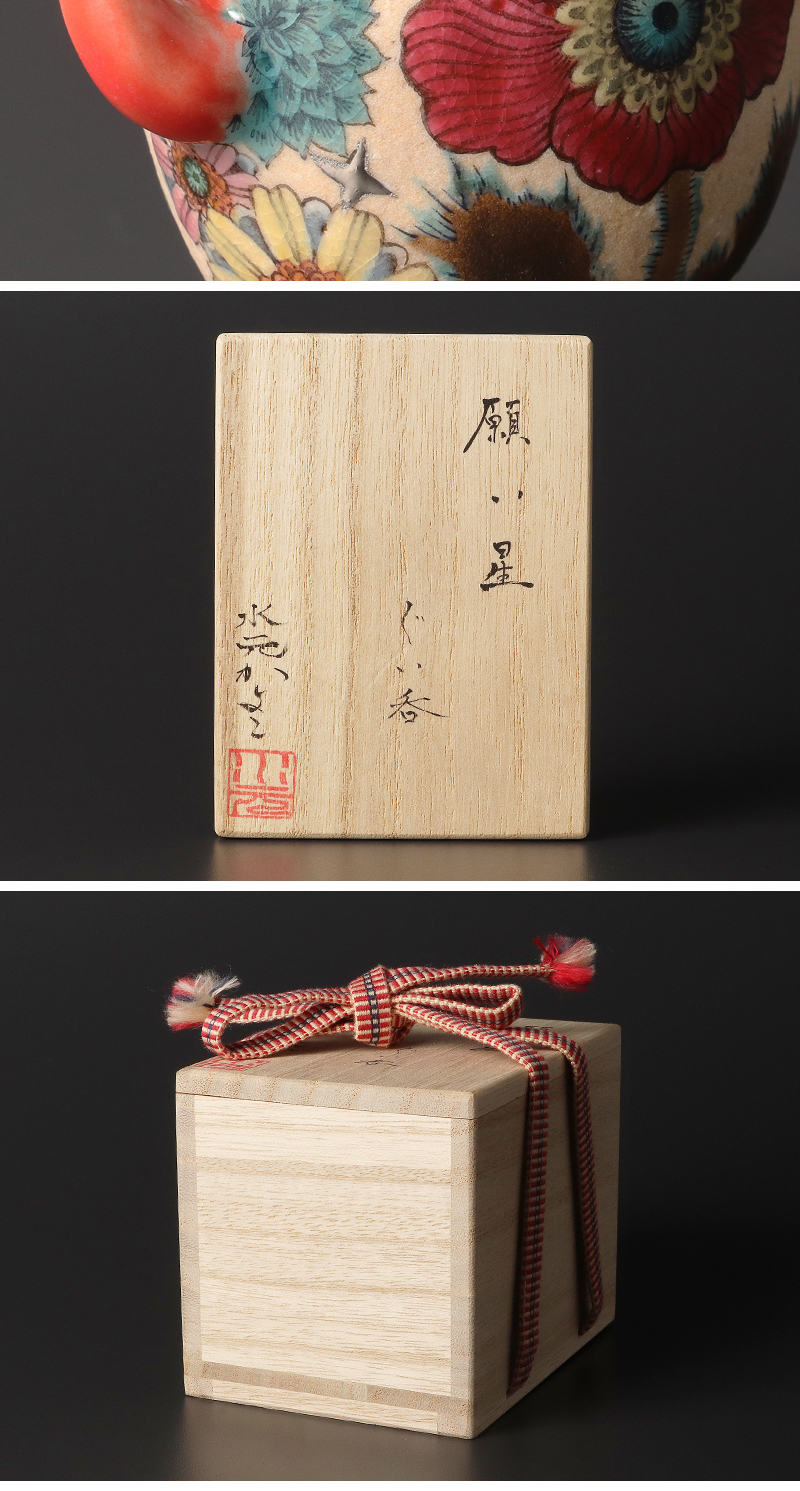 願い星
ぐい呑
水元かよこ